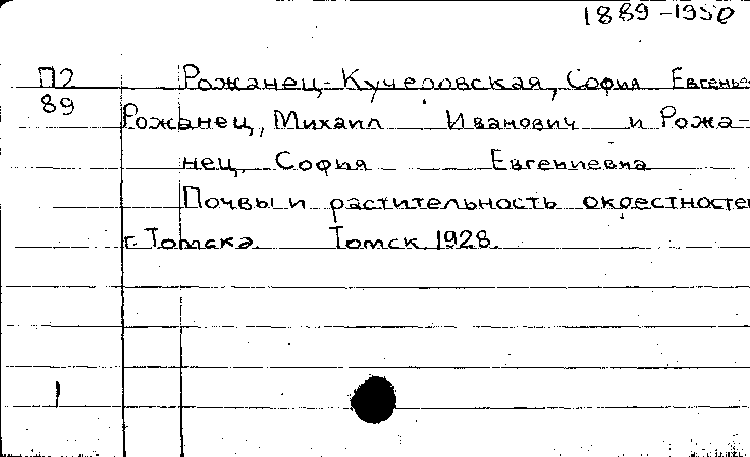 1889-1950
П2 Рожанец-Кучеровская, София Евгенье
89
Рожанец, Михаил Иванович и Рожа-
нец, София Евгениевна
Почвы и растительность окрестностей
г. Томска. Томск, 1928.
1